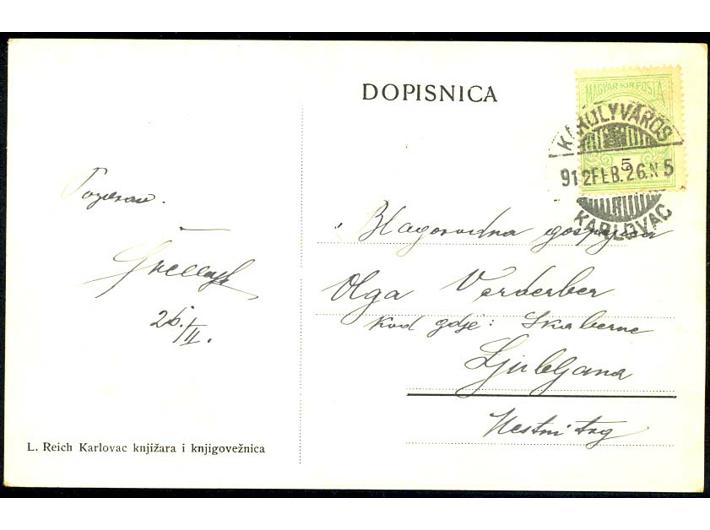 DOPISNICA
MAGYAR KIR. POSTA
5
KÁROLYVÁROS
912 FEB. 26. N 5
KARLOVAC
Pozdrav.
26./II.
Blagorodna gospojica
Olga Verderber
Kod gdje: Skaberne
Ljubljana
Mestni trg
L. Reich Karlovac knjižara i knjigovežnica